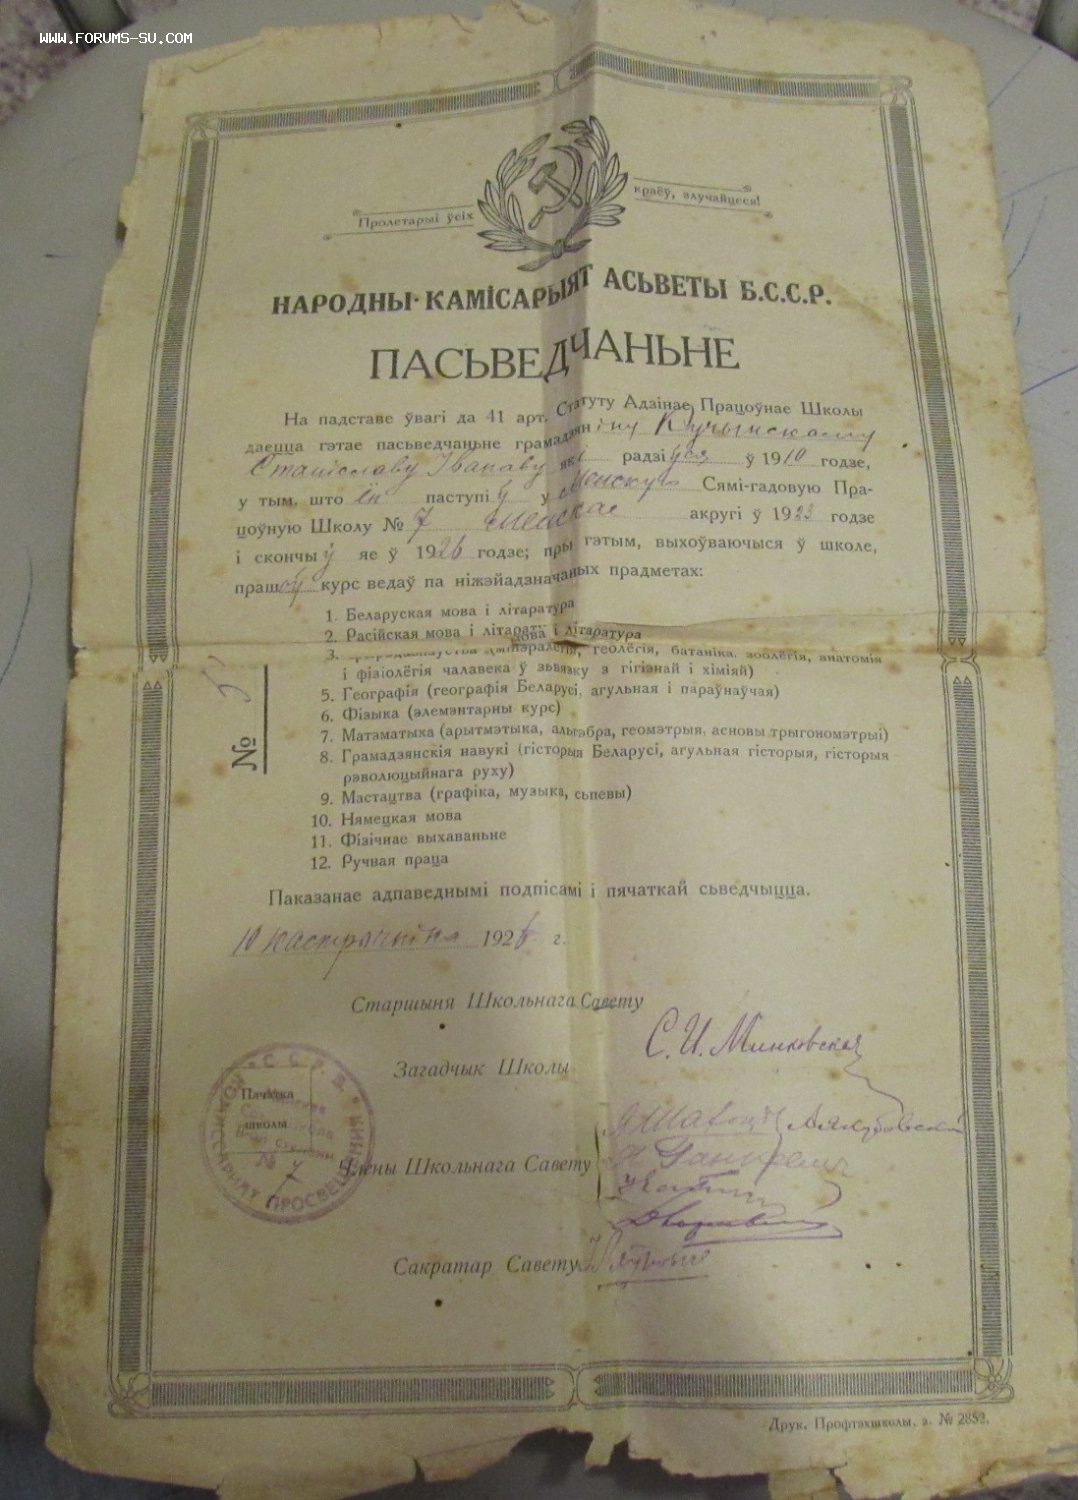 WWW.FORUMS-SU.COM
Пролетарыі ўсіх краёў, злучайцеся!
НАРОДНЫ КАМІСАРЫЯТ АСЬВЕТЫ Б.С.С.Р.
ПАСЬВЕДЧАНЬНЕ
На падставе ўвагі да 41 арт. Статуту Адзінае Працоўнае Школы
даецца гэтае пасьведчаньне грамадзяніну
Станіславу Іванаву які радзіўся ў 1910 годзе,
у тым, што ён паступіў у Менскую Сямі-гадовую Пра-
цоўную Школу № 7 Менскае акругі ў 1923 годзе
і скончыў яе ў 1926 годзе; пры гэтым, выхоўваючыся ў школе,
прашоў курс ведаў па ніжэйадзначаных прадметах:
1. Беларуская мова і літаратура
2. Расійская мова і літарат
мова і літаратура
3. геолёгія, батаніка, зоолёгія, анатомія
і фізіолёгія чалавека ў зьвязку з гігіэнай і хіміяй)
5. Географія (географія Беларусі, агульная і параўнаўчая)
6. Фізыка (элемэнтарны курс)
7. Матэматыка (арытмэтыка, альгэбра, геомэтрыя, асновы трыгонометрыі)
8. Грамадзянскія навукі (гісторыя Беларусі, агульная гісторыя, гісторыя
рэволюцыйнага руху)
9. Мастацтва (графіка, музыка, сьпевы)
10. Нямецкая мова
11. Фізічнае выхаваньне
12. Ручная праца
№ 5
Паказанае адпаведнымі подпісамі і пячаткай сьведчыцца.
10 Кастрычніка 1926 г.
Старшыня Школьнага Савету
С. И. Минковская
Загадчык Школы
Пячатка
школы
С.С.Р.Б.
ПРОСВЕЩЕНИЯ
№ 7
Члены Школьнага Савету
Сакратар Савету
Друк. Профтэхшколы, з. № 2852.